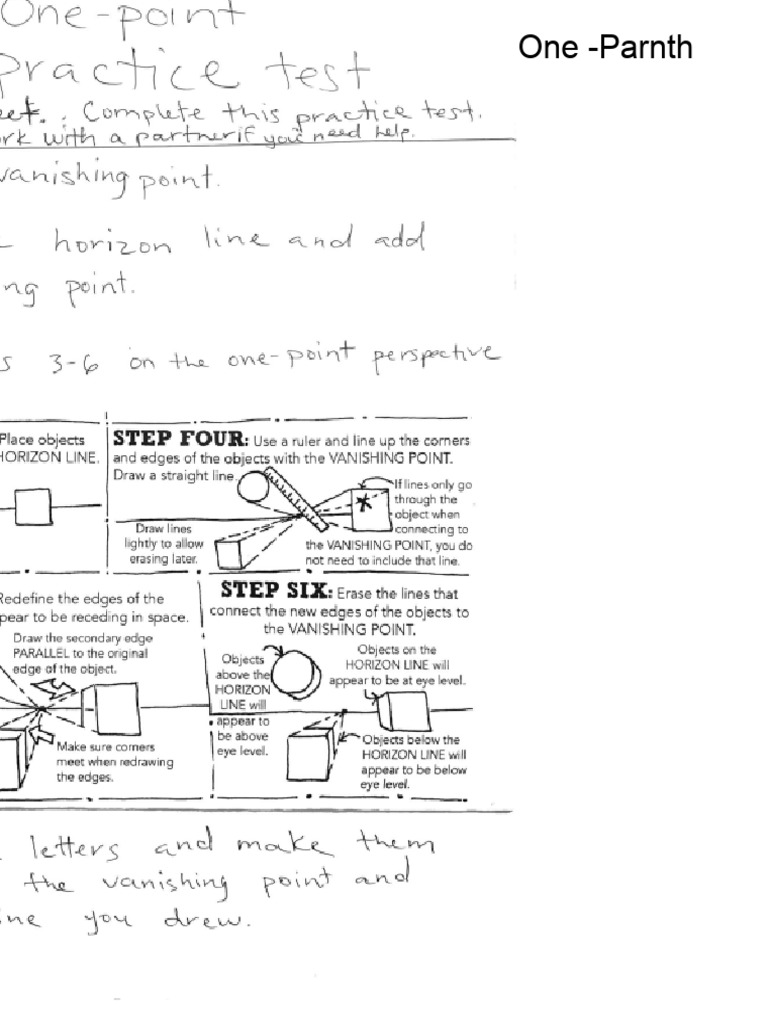 One-point
One -Parnth
Practice test
eet. . Complete this practice test.
rk with a partner if you need help.
vanishing point.
horizon line and add
ng point.
s 3-6 on the one-point perspective
Place objects
HORIZON LINE.
STEP FOUR: Use a ruler and line up the corners
and edges of the objects with the VANISHING POINT.
Draw a straight line.
If lines only go
through the
object when
connecting to
the VANISHING POINT, you do
not need to include that line.
Draw lines
lightly to allow
erasing later.
Redefine the edges of the
pear to be receding in space.
Draw the secondary edge
PARALLEL to the original
edge of the object.
Make sure corners
meet when redrawing
the edges.
STEP SIX: Erase the lines that
connect the new edges of the objects to
the VANISHING POINT.
Objects
above the
HORIZON
LINE will
appear to
be above
eye level.
Objects on the
HORIZON LINE will
appear to be at eye level.
Objects below the
HORIZON LINE will
appear to be below
eye level.
letters and make them
the vanishing point and
ine you drew.